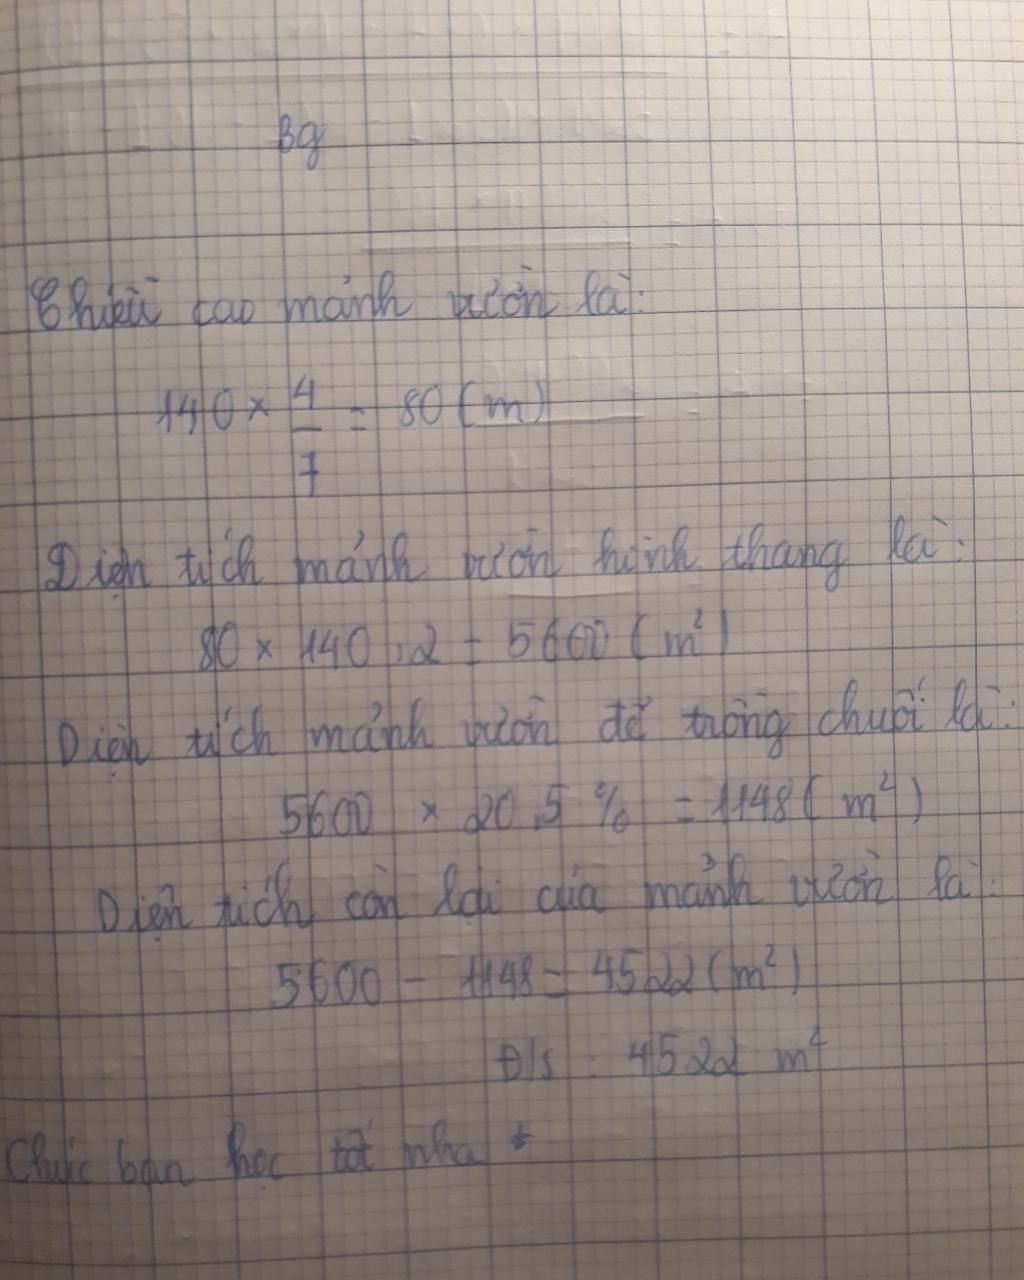 Bg
Chiều cao mảnh vườn là:
140 × 4/7 = 80 (m)
Diện tích mảnh vườn hình thang là:
80 × 140 : 2 = 5600 (m²)
Diện tích mảnh vườn để trồng chuối là:
5600 × 20,5 % = 1148 (m²)
Diện tích còn lại của mảnh vườn là:
5600 - 1148 = 4522 (m²)
Đ/s : 4522 m²
Chúc bạn học tốt nha